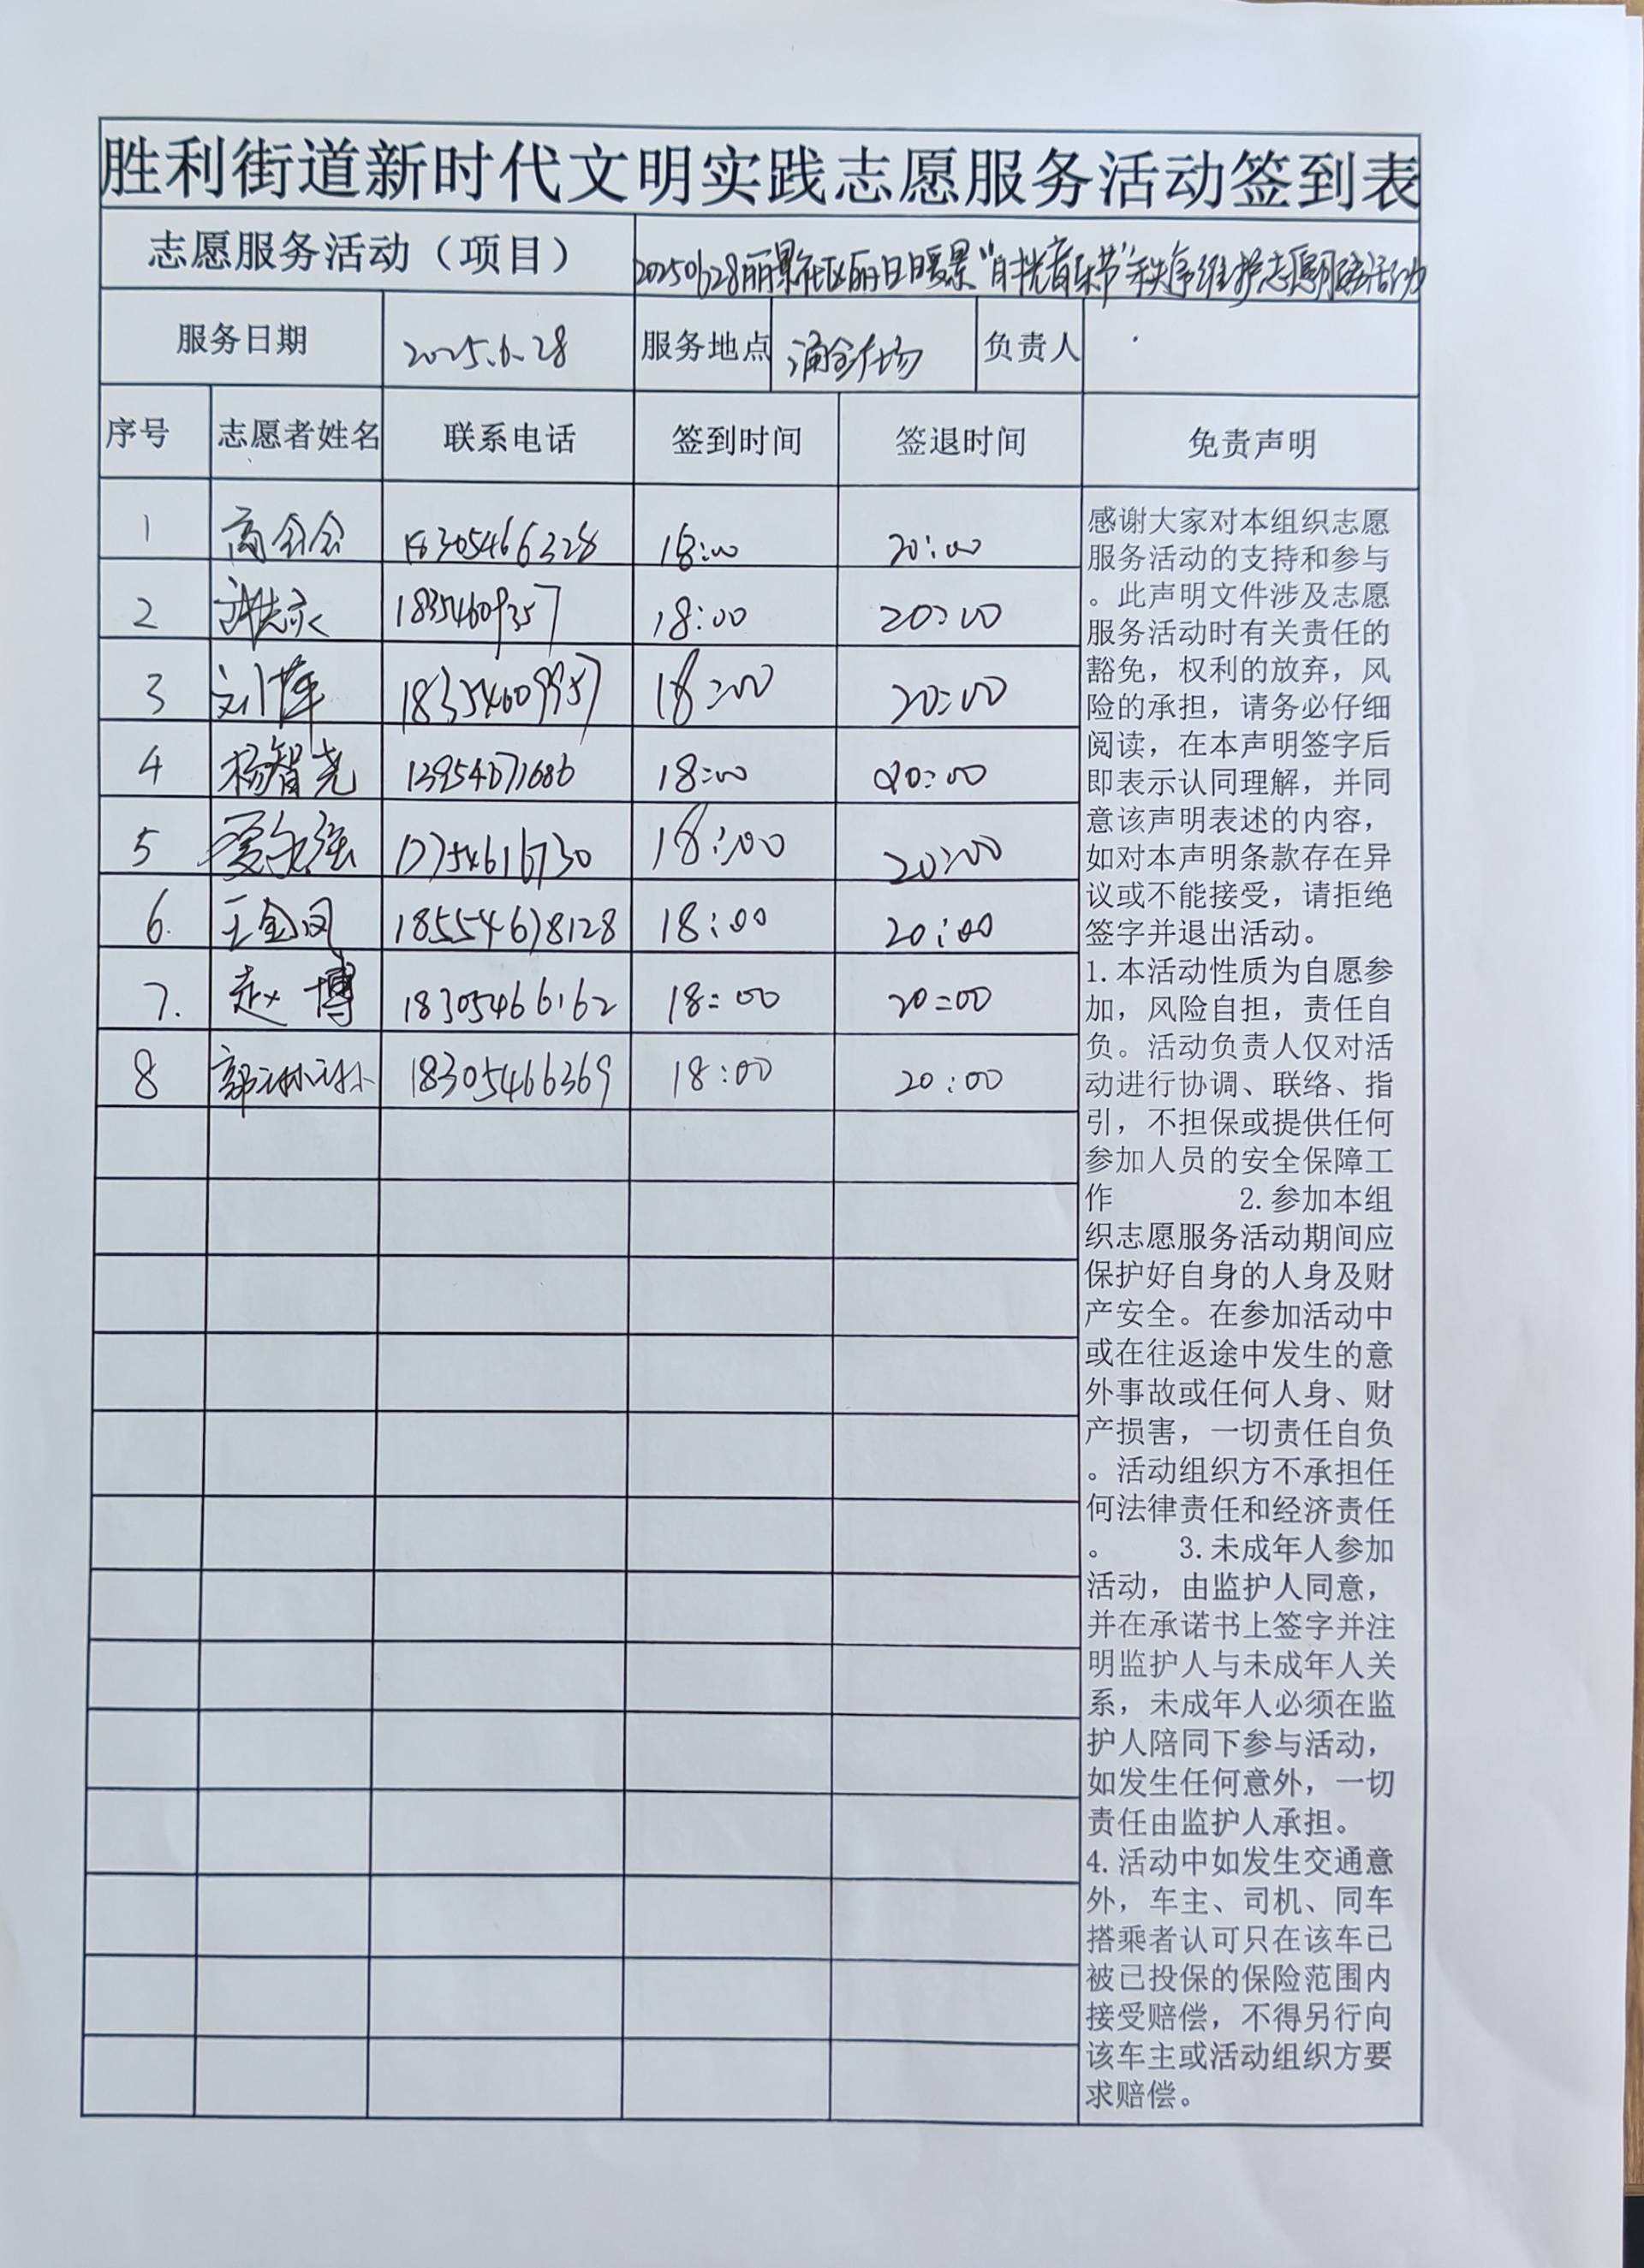 胜利街道新时代文明实践志愿服务活动签到表
志愿服务活动（项目） 20250628丽景社区丽日暖景"自扰音乐节"秩序维护志愿服务活动
服务日期 2025.6.28 服务地点 涌金广场 负责人
序号 志愿者姓名 联系电话 签到时间 签退时间 免责声明
1 商会会 18305466328 18:00 20:00
2 18:00 20:00
3 刘萍 18354609957 18:00 20:00
4 杨智尧 13954671686 18:00 20:00
5 17754616730 18:00 20:00
6. 王金凤 18554678128 18:00 20:00
7. 赵博 18305466162 18:00 20:00
8 郭琳琳 18305466369 18:00 20:00
感谢大家对本组织志愿
服务活动的支持和参与
。此声明文件涉及志愿
服务活动时有关责任的
豁免，权利的放弃，风
险的承担，请务必仔细
阅读，在本声明签字后
即表示认同理解，并同
意该声明表述的内容，
如对本声明条款存在异
议或不能接受，请拒绝
签字并退出活动。
1.本活动性质为自愿参
加，风险自担，责任自
负。活动负责人仅对活
动进行协调、联络、指
引，不担保或提供任何
参加人员的安全保障工
作 2.参加本组
织志愿服务活动期间应
保护好自身的人身及财
产安全。在参加活动中
或在往返途中发生的意
外事故或任何人身、财
产损害，一切责任自负
。活动组织方不承担任
何法律责任和经济责任
。 3.未成年人参加
活动，由监护人同意，
并在承诺书上签字并注
明监护人与未成年人关
系，未成年人必须在监
护人陪同下参与活动，
如发生任何意外，一切
责任由监护人承担。
4.活动中如发生交通意
外，车主、司机、同车
搭乘者认可只在该车已
被已投保的保险范围内
接受赔偿，不得另行向
该车主或活动组织方要
求赔偿。